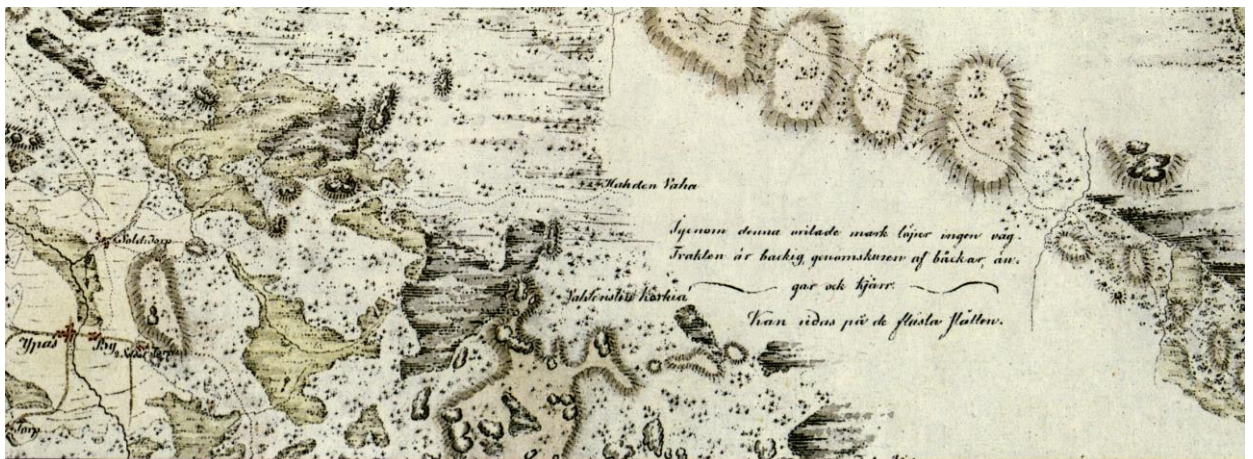 Hahden Vaha
Igenom denna oritade mark löper ingen väg.
Trakten är backig, genomskuren af bäckar, än-
gar ock kjärr.
Kan ridas på de flästa ställen.
Soldt. torp
Korkia
Ypäs
By
torp
Torp